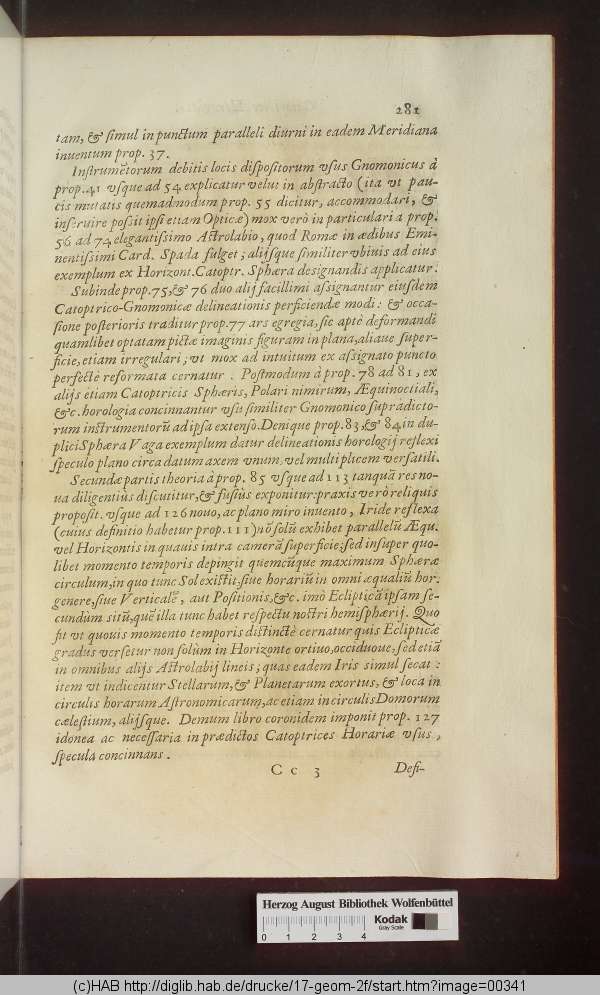 281
tam, & simul in punctum paralleli diurni in eadem Meridiana
inuentum prop. 37.
Instrumẽtorum debitis locis dispositorum vsus Gnomonicus à
prop. 41 vsque ad 54 explicatur velut in abstracto (ita vt pau-
cis mutatis quemadmodum prop. 55 dicitur, accommodari, &
inseruire possit ipsi etiam Opticæ) mox verò in particulari a prop.
56 ad 74, elegantissimo Astrolabio, quod Romæ in ædibus Emi-
nentissimi Card. Spada fulget; alijsque similiter vbiuis ad eius
exemplum ex Horizont. Catoptr. Sphæra designandis applicatur.
Subinde prop. 75, & 76 duo alij facillimi assignantur eiusdem
Catoptrico-Gnomonicæ delineationis perficiendæ modi: & occa-
sione posterioris traditur prop. 77 ars egregia, sic aptè deformandi
quamlibet optatam pictæ imaginis figuram in plana, aliaue super-
ficie, etiam irregulari; vt mox ad intuitum ex assignato puncto
perfectè reformata cernatur. Postmodum à prop. 78 ad 81, ex
alijs etiam Catoptricis Sphæris, Polari nimirum, Æquinoctiali,
&c. horologia concinnantur vsu similiter Gnomonico supradicto-
rum instrumentorũ ad ipsa extenso. Denique prop. 83, & 84 in du-
plici Sphæra Vaga exemplum datur delineationis horologij reflexi
speculo plano circa datum axem vnum, vel multiplicem versatili.
Secundæ partis theoria à prop. 85 vsque ad 113 tanquã res no-
ua diligentiùs discutitur, & fusiùs exponitur: praxis verò reliquis
proposit. vsque ad 126 nouo, ac plano miro inuento, Iride reflexa
(cuius definitio habetur prop. 111) nõ solũ exhibet parallelũ Æqu.
vel Horizontis in quauis intra camerã superficie; sed insuper quo-
libet momento temporis depingit quemcũque maximum Sphæræ
circulum, in quo tunc Sol existit, siue horariũ in omni æqualiũ hor.
genere, siue Verticalẽ, aut Positionis, &c. imò Eclipticã ipsam se-
cundùm sitũ, quẽ illa tunc habet respectu nostri hemisphærij. Quo
fit vt quouis momento temporis distinctè cernatur quis Eclipticæ
gradus versetur non solùm in Horizonte ortiuo, occiduoue, sed etiã
in omnibus alijs Astrolabij lineis; quas eadem Iris simul secat:
item vt indicentur Stellarum, & Planetarum exortus, & loca in
circulis horarum Astronomicarum, ac etiam in circulis Domorum
cælestium, alijsque. Demum libro coronidem imponit prop. 127
idonea ac necessaria in prædictos Catoptrices Horariæ vsus,
specula concinnans.
C c 3 Defi-
Herzog August Bibliothek Wolfenbüttel
0 1 2 3 4 Kodak
Gray Scale
(c)HAB http://diglib.hab.de/drucke/17-geom-2f/start.htm?image=00341